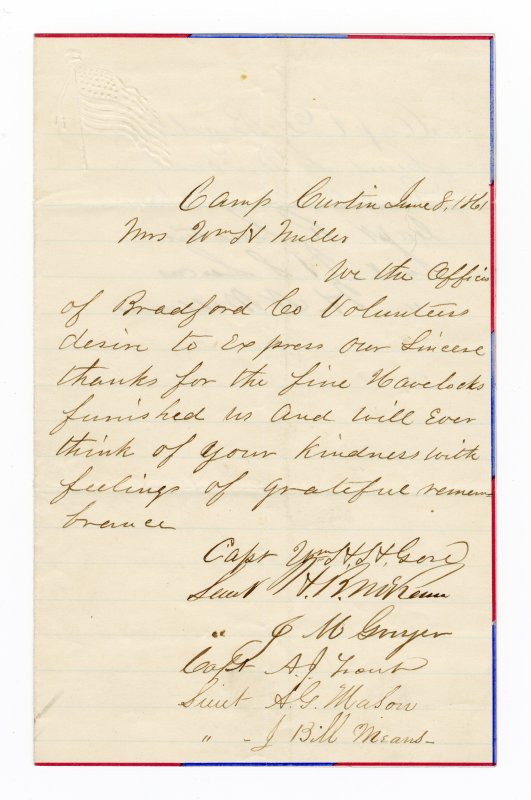 Camp Curtin June 8, 1861
Mrs Wm H Miller
We the Officers
of Bradford Co Volunteers
desire to Express our Sincere
thanks for the fine Havelocks
furnished us and will Ever
think of your kindness with
feelings of grateful remem-
brance
Capt Wm H. H. Gore
Lieut H. R. McKean
" J M Guyer
Capt A. J. Trout
Lieut A. G. Mason
" - J Bill Means -